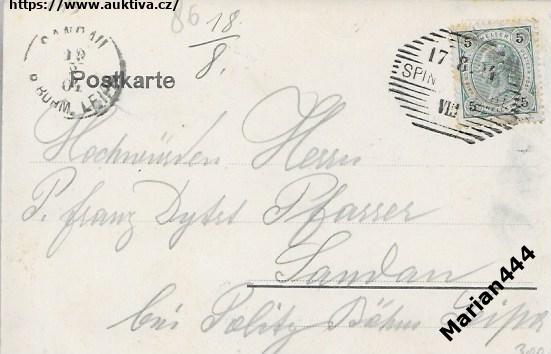 https://www.auktiva.cz/
86 18/8.
SANDAU
B. BÖHM. LEIPA
Postkarte
17 8
SPIN
5 HELLER 5
5 5
Hochwürden Herrn
P. Franz Pfarrer
Sandau
bei Politz Böhm Leipa
Marian444
300